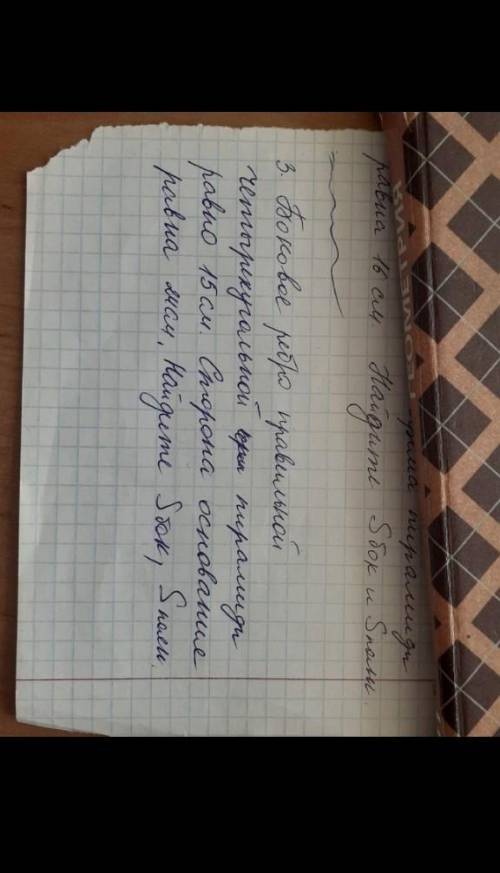 пирамиди
равна 16 см. Найдите Sбок и Sполн.
3. Боковое ребро правильной
четырехугальной пирамиди
равно 15см. Сторона основание
равна см, Найдите Sбок, Sполн.